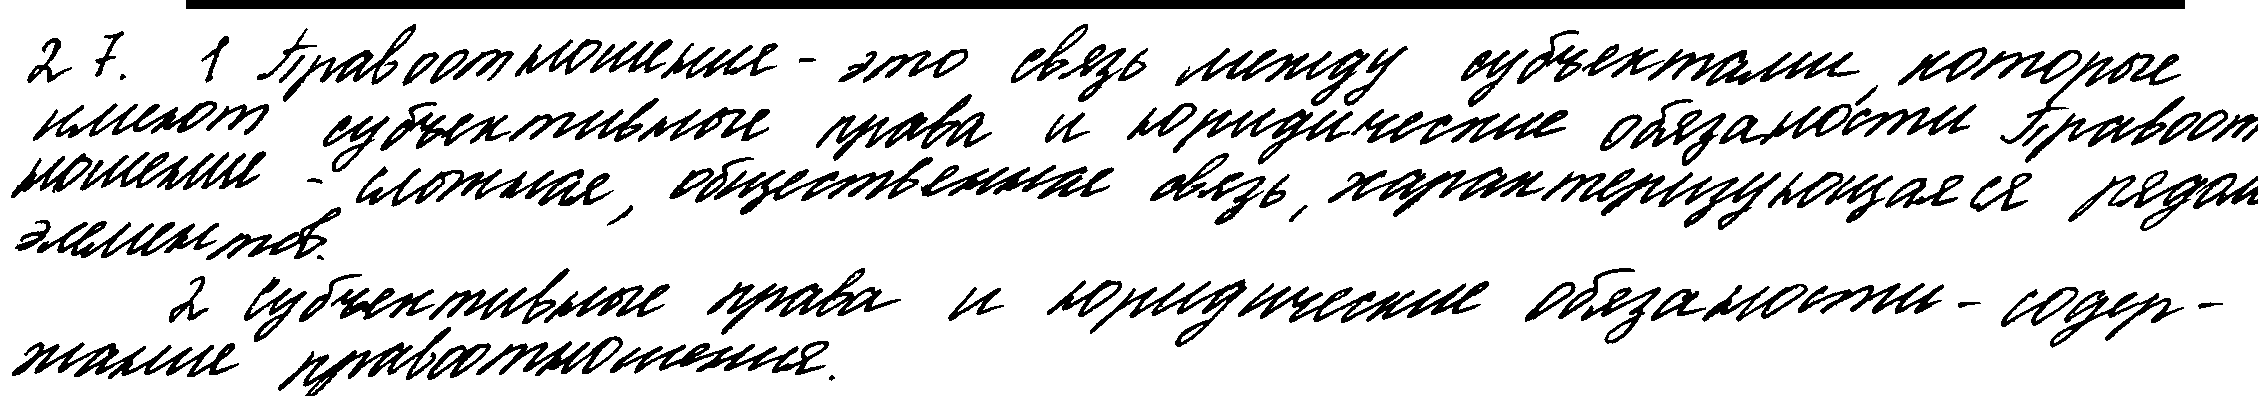 27. 1 Правоотношение - это связь между субъектами, которые
имеют субъективные права и юридические обязаности Правоот
ношение - сложная, общественная связь, характеризующаяся рядом
элементов.
2 Субъективные права и юридические обязаности - содер-
жание правоотношения.